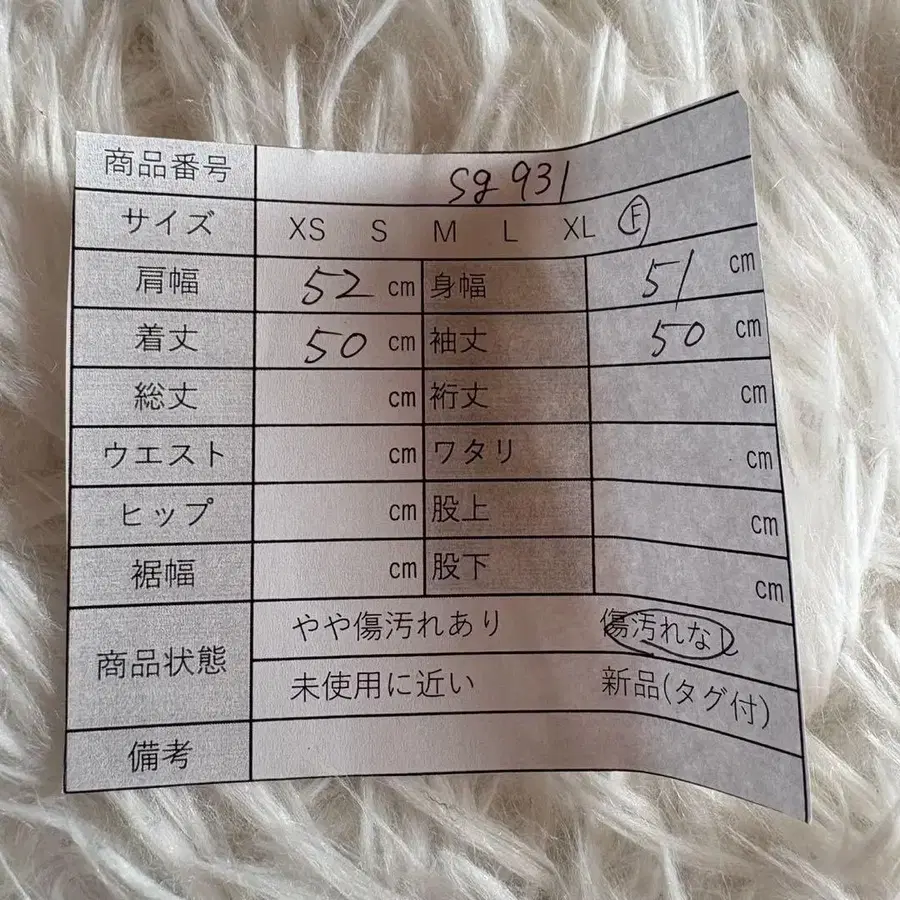 商品番号 sg 931
サイズ XS S M L XL F
肩幅 52 cm 身幅 51 cm
着丈 50 cm 袖丈 50 cm
総丈 cm 裄丈 cm
ウエスト cm ワタリ cm
ヒップ cm 股上 cm
裾幅 cm 股下 cm
商品状態 やや傷汚れあり 傷汚れなし
未使用に近い 新品(タグ付)
備考